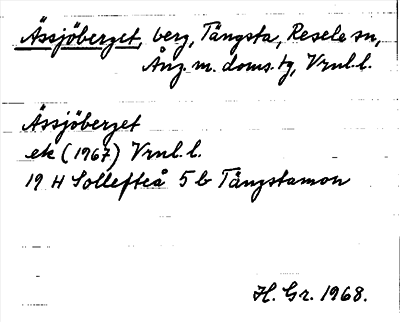 Ässjöberget, berg, Tängsta, Resele sn,
Ång. m. doms. tg, Vrnl. l.
Ässjöberget
ek (1967) Vrnl. l.
19 H Sollefteå 5 b Tängstamon
H. Gr. 1968.